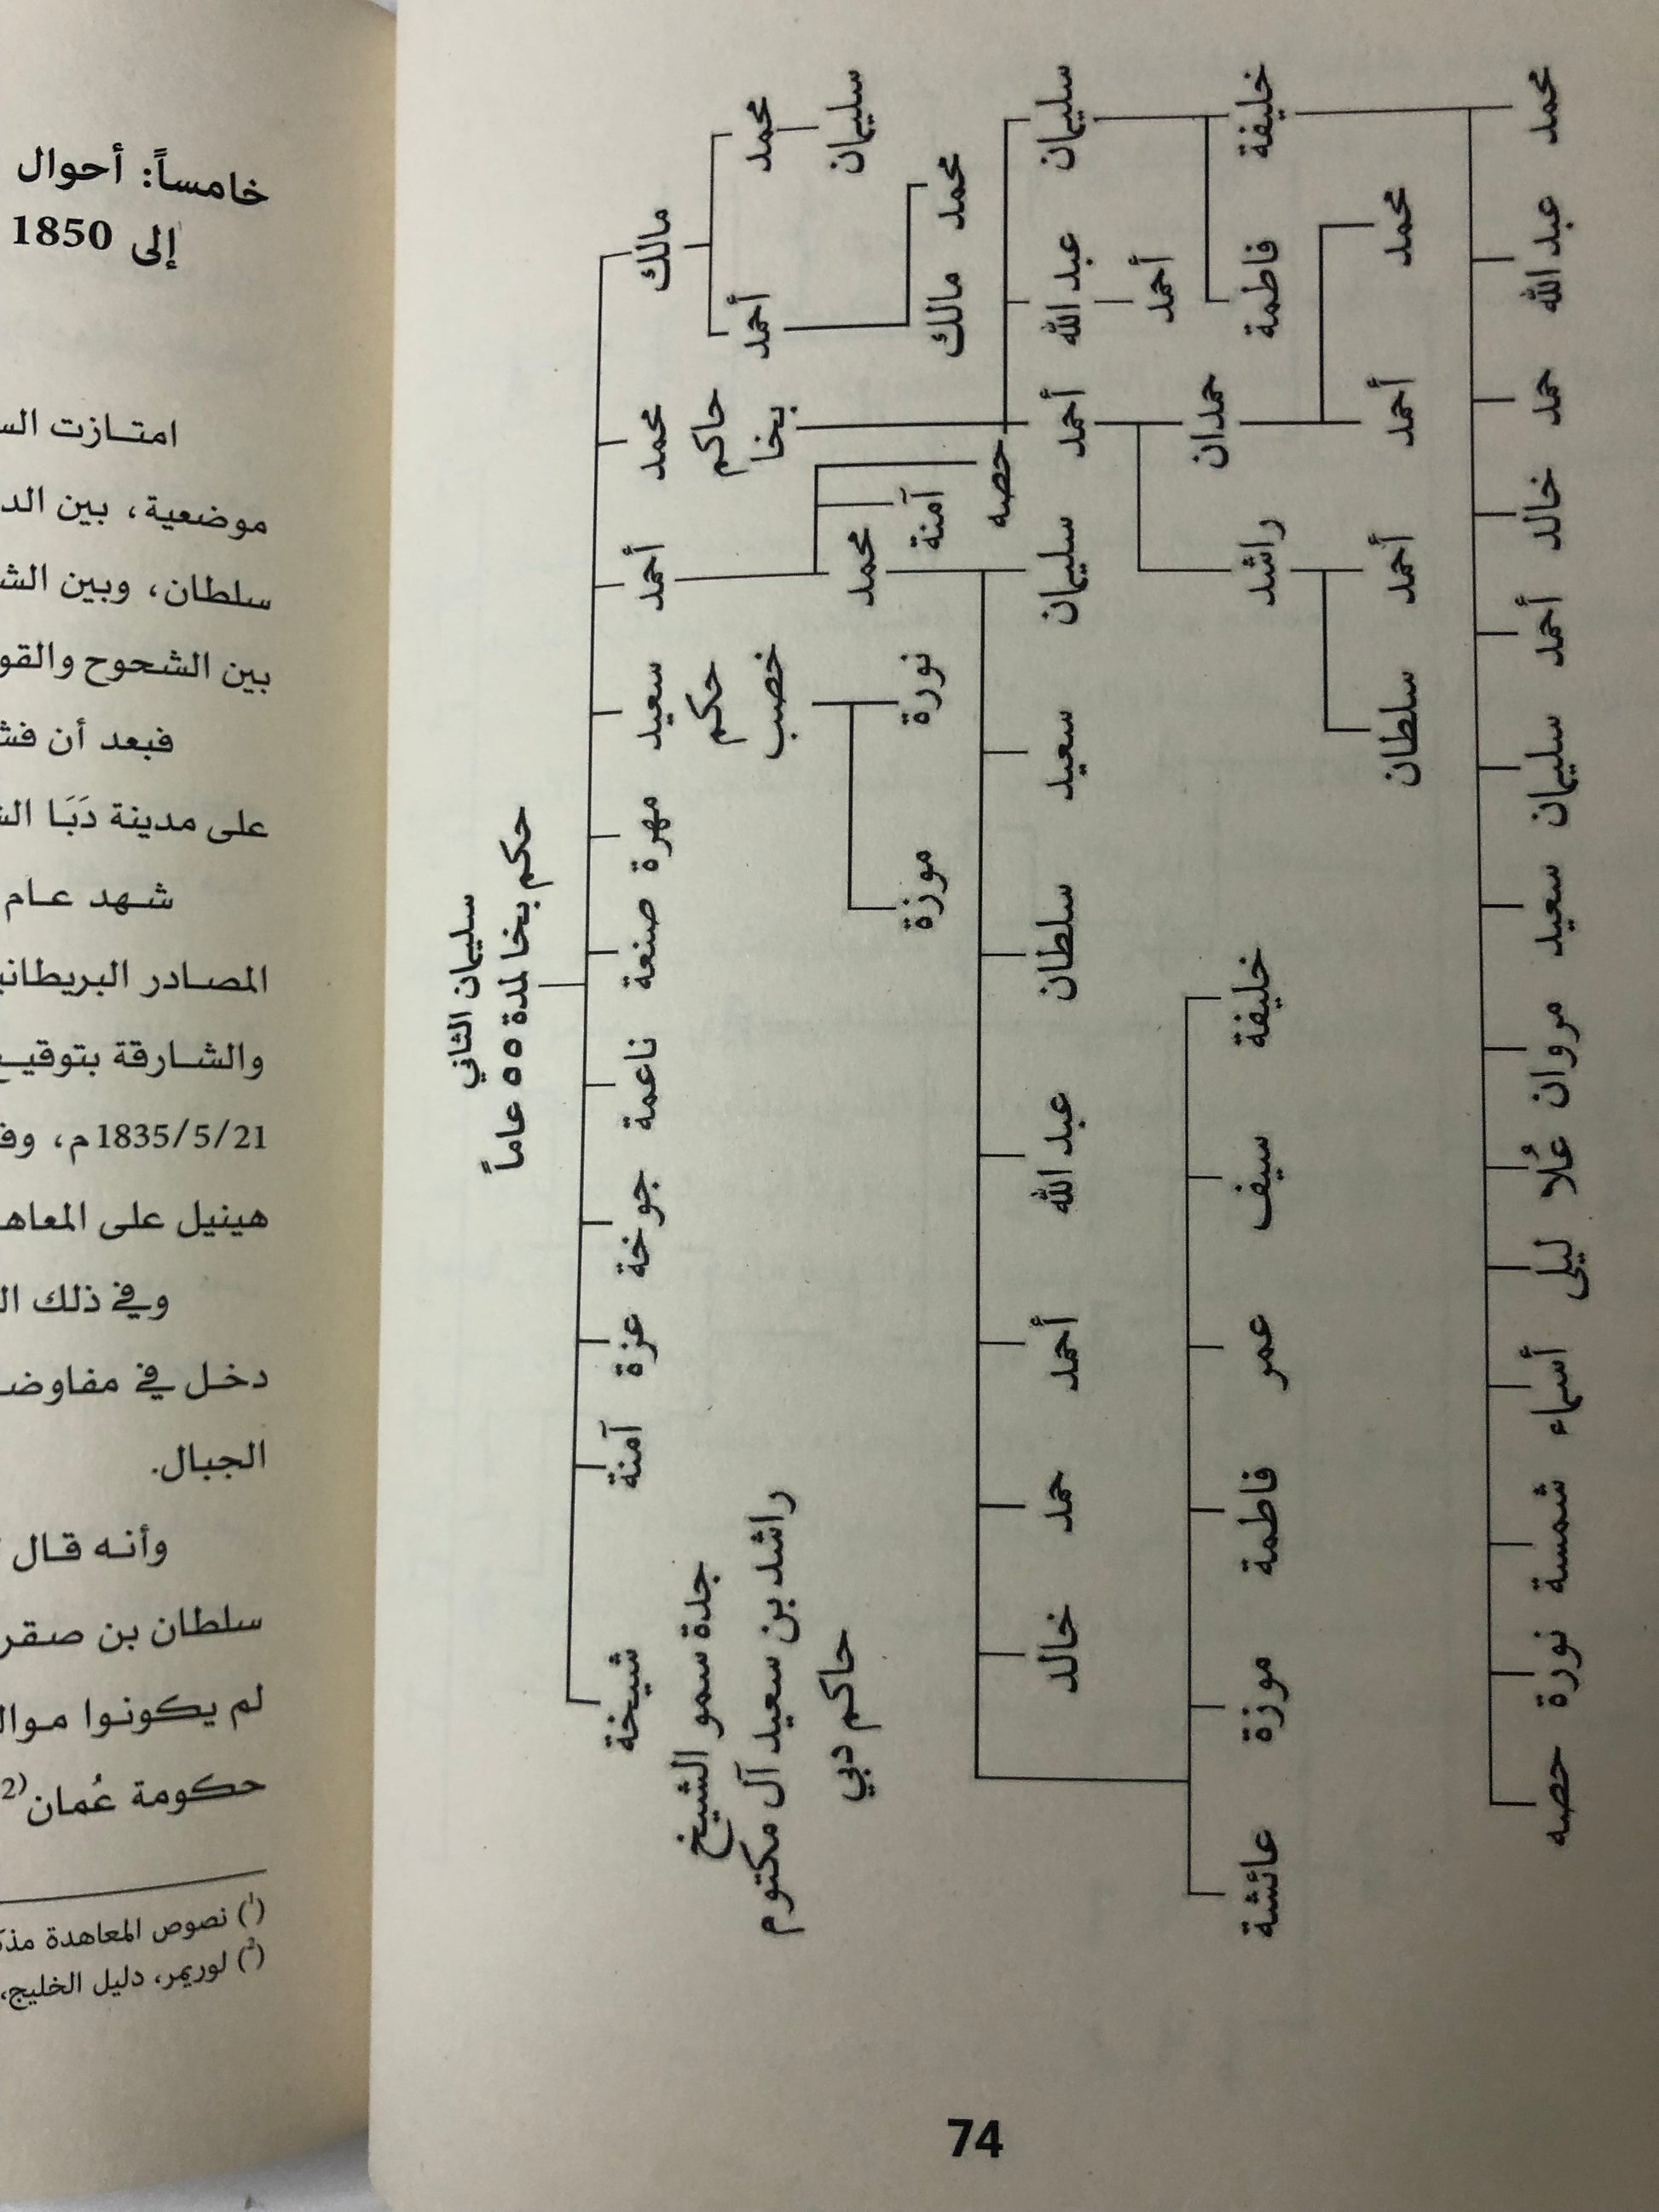 خامساً: أحوال
إلى 1850
امتازت
موضعية، بين
سلطان، وبين
بين الشحوح
فبعد أن
على مدينة دَبَا
شهد عام
المصادر
والشارقة بتوقيع
1835/5/21م،
هينيل على
وفي ذلك
دخل في
الجبال.
وأنه قال
سلطان بن صقر
لم يكونوا
حكومة عُمان(2
(1) نصوص المعاهدة
(2) لوريمر، دليل الخليج،
سليمان الثاني
حكم بخا لمدة ٥٥ عاماً
مالك محمد أحمد سعيد مهرة صنعة ناعمة جوخة عزة آمنة شيخة
حاكم بخا
حكم خصب
جدة سمو الشيخ
راشد بن سعيد آل مكتوم
حاكم دبي
محمد أحمد
سليمان
محمد مالك
محمد آمنة حصه
نورة موزة
سليمان عبد الله أحمد
سليمان سعيد سلطان عبد الله أحمد حمد خالد
أحمد
خليفة فاطمة
حمدان راشد
خليفة سيف عمر فاطمة موزة عائشة
محمد أحمد
أحمد سلطان
محمد عبد الله حمد خالد أحمد سليمان سعيد مروان عُلا ليلى أسماء شمسة نورة حصه
74